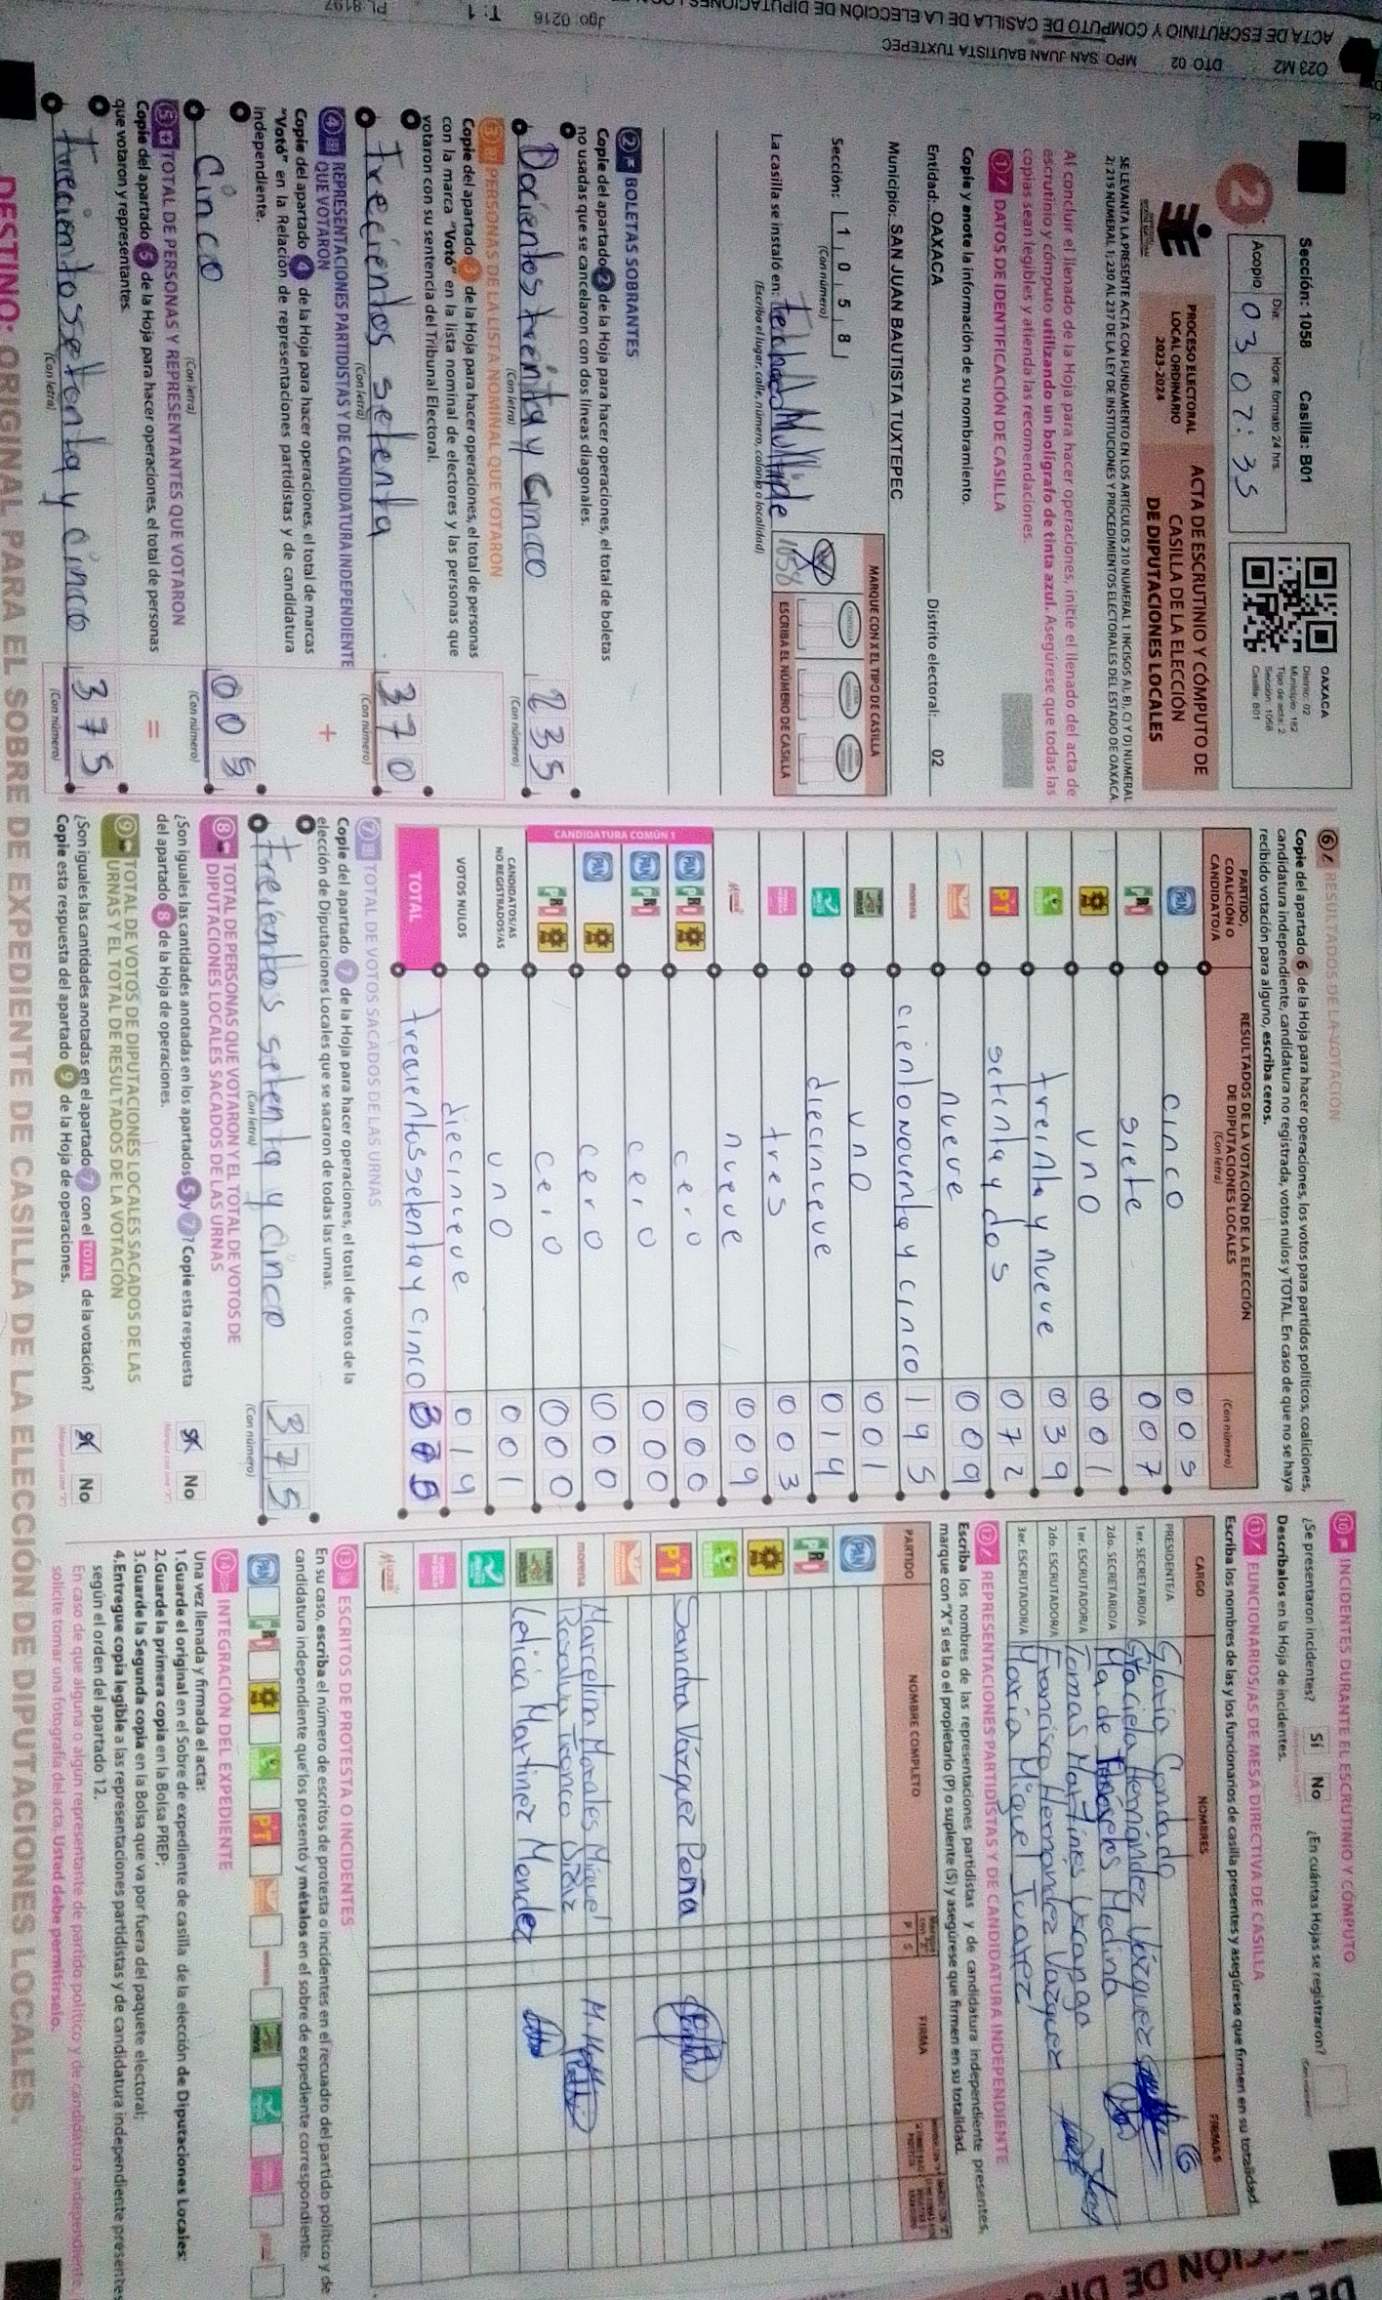 O23 M2 DTO: 02 MPO: SAN JUAN BAUTISTA TUXTEPEC
ACTA DE ESCRUTINIO Y CÓMPUTO DE CASILLA DE LA ELECCIÓN DE DIPUTACIONES
Jgo: 0216 T: 1 PL: 8197
Sección: 1058 Casilla: B01
2
Día: Hora: formato 24 hrs.
Acopio 03 07:35
OAXACA
Distrito: 02
Municipio: 182
Tipo de acta: 2
Sección: 1058
Casilla: B01
PROCESO ELECTORAL
LOCAL ORDINARIO
2023-2024
ACTA DE ESCRUTINIO Y CÓMPUTO DE
CASILLA DE LA ELECCIÓN
DE DIPUTACIONES LOCALES
SE LEVANTA LA PRESENTE ACTA CON FUNDAMENTO EN LOS ARTÍCULOS 210 NUMERAL 1 INCISOS A), B), C) Y D) NUMERAL
2; 215 NUMERAL 1; 230 AL 237 DE LA LEY DE INSTITUCIONES Y PROCEDIMIENTOS ELECTORALES DEL ESTADO DE OAXACA.
Al concluir el llenado de la Hoja para hacer operaciones, inicie el llenado del acta de
escrutinio y cómputo utilizando un bolígrafo de tinta azul. Asegúrese que todas las
copias sean legibles y atienda las recomendaciones.
1 DATOS DE IDENTIFICACIÓN DE CASILLA
Copie y anote la información de su nombramiento.
Entidad: OAXACA Distrito electoral: 02
Municipio: SAN JUAN BAUTISTA TUXTEPEC
Sección: 1 0 5 8
(Con número)
MARQUE CON X EL TIPO DE CASILLA
ESCRIBA EL NÚMERO DE CASILLA
1058
La casilla se instaló en:
(Escriba el lugar, calle, número, colonia o localidad)
2 BOLETAS SOBRANTES
Copie del apartado 2 de la Hoja para hacer operaciones, el total de boletas
no usadas que se cancelaron con dos líneas diagonales.
Docientos treinta y cinco 235
(Con letra) (Con número)
3 PERSONAS DE LA LISTA NOMINAL QUE VOTARON
Copie del apartado 3 de la Hoja para hacer operaciones, el total de personas
con la marca "Votó" en la lista nominal de electores y las personas que
votaron con su sentencia del Tribunal Electoral.
trecientos setenta 370
(Con letra) (Con número)
4 REPRESENTACIONES PARTIDISTAS Y DE CANDIDATURA INDEPENDIENTE
QUE VOTARON +
Copie del apartado 4 de la Hoja para hacer operaciones, el total de marcas
"Votó" en la Relación de representaciones partidistas y de candidatura
independiente.
Cinco 005
(Con letra) (Con número)
5 TOTAL DE PERSONAS Y REPRESENTANTES QUE VOTARON =
Copie del apartado 5 de la Hoja para hacer operaciones, el total de personas
que votaron y representantes.
trecientos setenta y cinco 375
(Con letra) (Con número)
6 RESULTADOS DE LA VOTACIÓN
Copie del apartado 6 de la Hoja para hacer operaciones, los votos para partidos políticos, coaliciones,
candidatura independiente, candidatura no registrada, votos nulos y TOTAL. En caso de que no se haya
recibido votación para alguno, escriba ceros.
PARTIDO, COALICIÓN O CANDIDATO/A
RESULTADOS DE LA VOTACIÓN DE LA ELECCIÓN
DE DIPUTACIONES LOCALES
(Con letra) (Con número)
PAN cinco 005
PRI siete 007
uno 001
treinta y nueve 039
PT setenta y dos 072
nueve 009
morena ciento noventa y cinco 195
uno 001
diecinueve 019
tres 003
nueve 009
CANDIDATURA COMÚN 1
PAN PRI cero 000
PAN PRI cero 000
PAN cero 000
PRI cero 000
CANDIDATOS/AS NO REGISTRADOS/AS uno 001
VOTOS NULOS diecinueve 019
TOTAL trecientos setenta y cinco 375
7 TOTAL DE VOTOS SACADOS DE LAS URNAS
Copie del apartado 7 de la Hoja para hacer operaciones, el total de votos de la
elección de Diputaciones Locales que se sacaron de todas las urnas.
treientos setenta y cinco 375
(Con letra) (Con número)
8 TOTAL DE PERSONAS QUE VOTARON Y EL TOTAL DE VOTOS DE
DIPUTACIONES LOCALES SACADOS DE LAS URNAS
¿Son iguales las cantidades anotadas en los apartados 5 y 7? Copie esta respuesta
del apartado 8 de la Hoja de operaciones. No
9 TOTAL DE VOTOS DE DIPUTACIONES LOCALES SACADOS DE LAS
URNAS Y EL TOTAL DE RESULTADOS DE LA VOTACIÓN
¿Son iguales las cantidades anotadas en el apartado 7 con el TOTAL de la votación?
Copie esta respuesta del apartado 9 de la Hoja de operaciones. No
10 INCIDENTES DURANTE EL ESCRUTINIO Y CÓMPUTO
¿Se presentaron incidentes? Sí No ¿En cuántas Hojas se registraron?
Descríbalos en la Hoja de incidentes.
11 FUNCIONARIOS/AS DE MESA DIRECTIVA DE CASILLA
Escriba los nombres de las y los funcionarios de casilla presentes y asegúrese que firmen en su totalidad.
CARGO NOMBRES FIRMAS
PRESIDENTE/A Gloria Condado
1er. SECRETARIO/A Graciela Hernández Vázquez
2do. SECRETARIO/A Ma de Medina
1er. ESCRUTADOR/A Tomas Martínes
2do. ESCRUTADOR/A Francisca Hernández Vazquez
3er. ESCRUTADOR/A María Miguel Juarez
12 REPRESENTACIONES PARTIDISTAS Y DE CANDIDATURA INDEPENDIENTE
Escriba los nombres de las representaciones partidistas y de candidatura independiente presentes,
marque con "X" si es la o el propietario (P) o suplente (S) y asegúrese que firmen en su totalidad.
PARTIDO NOMBRE COMPLETO P S FIRMA
PAN
PRI
PT Sandra Vázquez Peña
morena Marcelina Morales Miguel
Leticia Martinez Mendez
13 ESCRITOS DE PROTESTA O INCIDENTES
En su caso, escriba el número de escritos de protesta o incidentes en el recuadro del partido político y de
candidatura independiente que los presentó y métalos en el sobre de expediente correspondiente.
PAN PRI PT morena
14 INTEGRACIÓN DEL EXPEDIENTE
Una vez llenada y firmada el acta:
1.Guarde el original en el Sobre de expediente de casilla de la elección de Diputaciones Locales;
2.Guarde la primera copia en la Bolsa PREP;
3.Guarde la Segunda copia en la Bolsa que va por fuera del paquete electoral;
4.Entregue copia legible a las representaciones partidistas y de candidatura independiente presentes
según el orden del apartado 12.
En caso de que alguna o algún representante de partido político y de candidatura independiente,
solicite tomar una fotografía del acta. Usted debe permitírselo.
DESTINO: ORIGINAL PARA EL SOBRE DE EXPEDIENTE DE CASILLA DE LA ELECCIÓN DE DIPUTACIONES LOCALES.